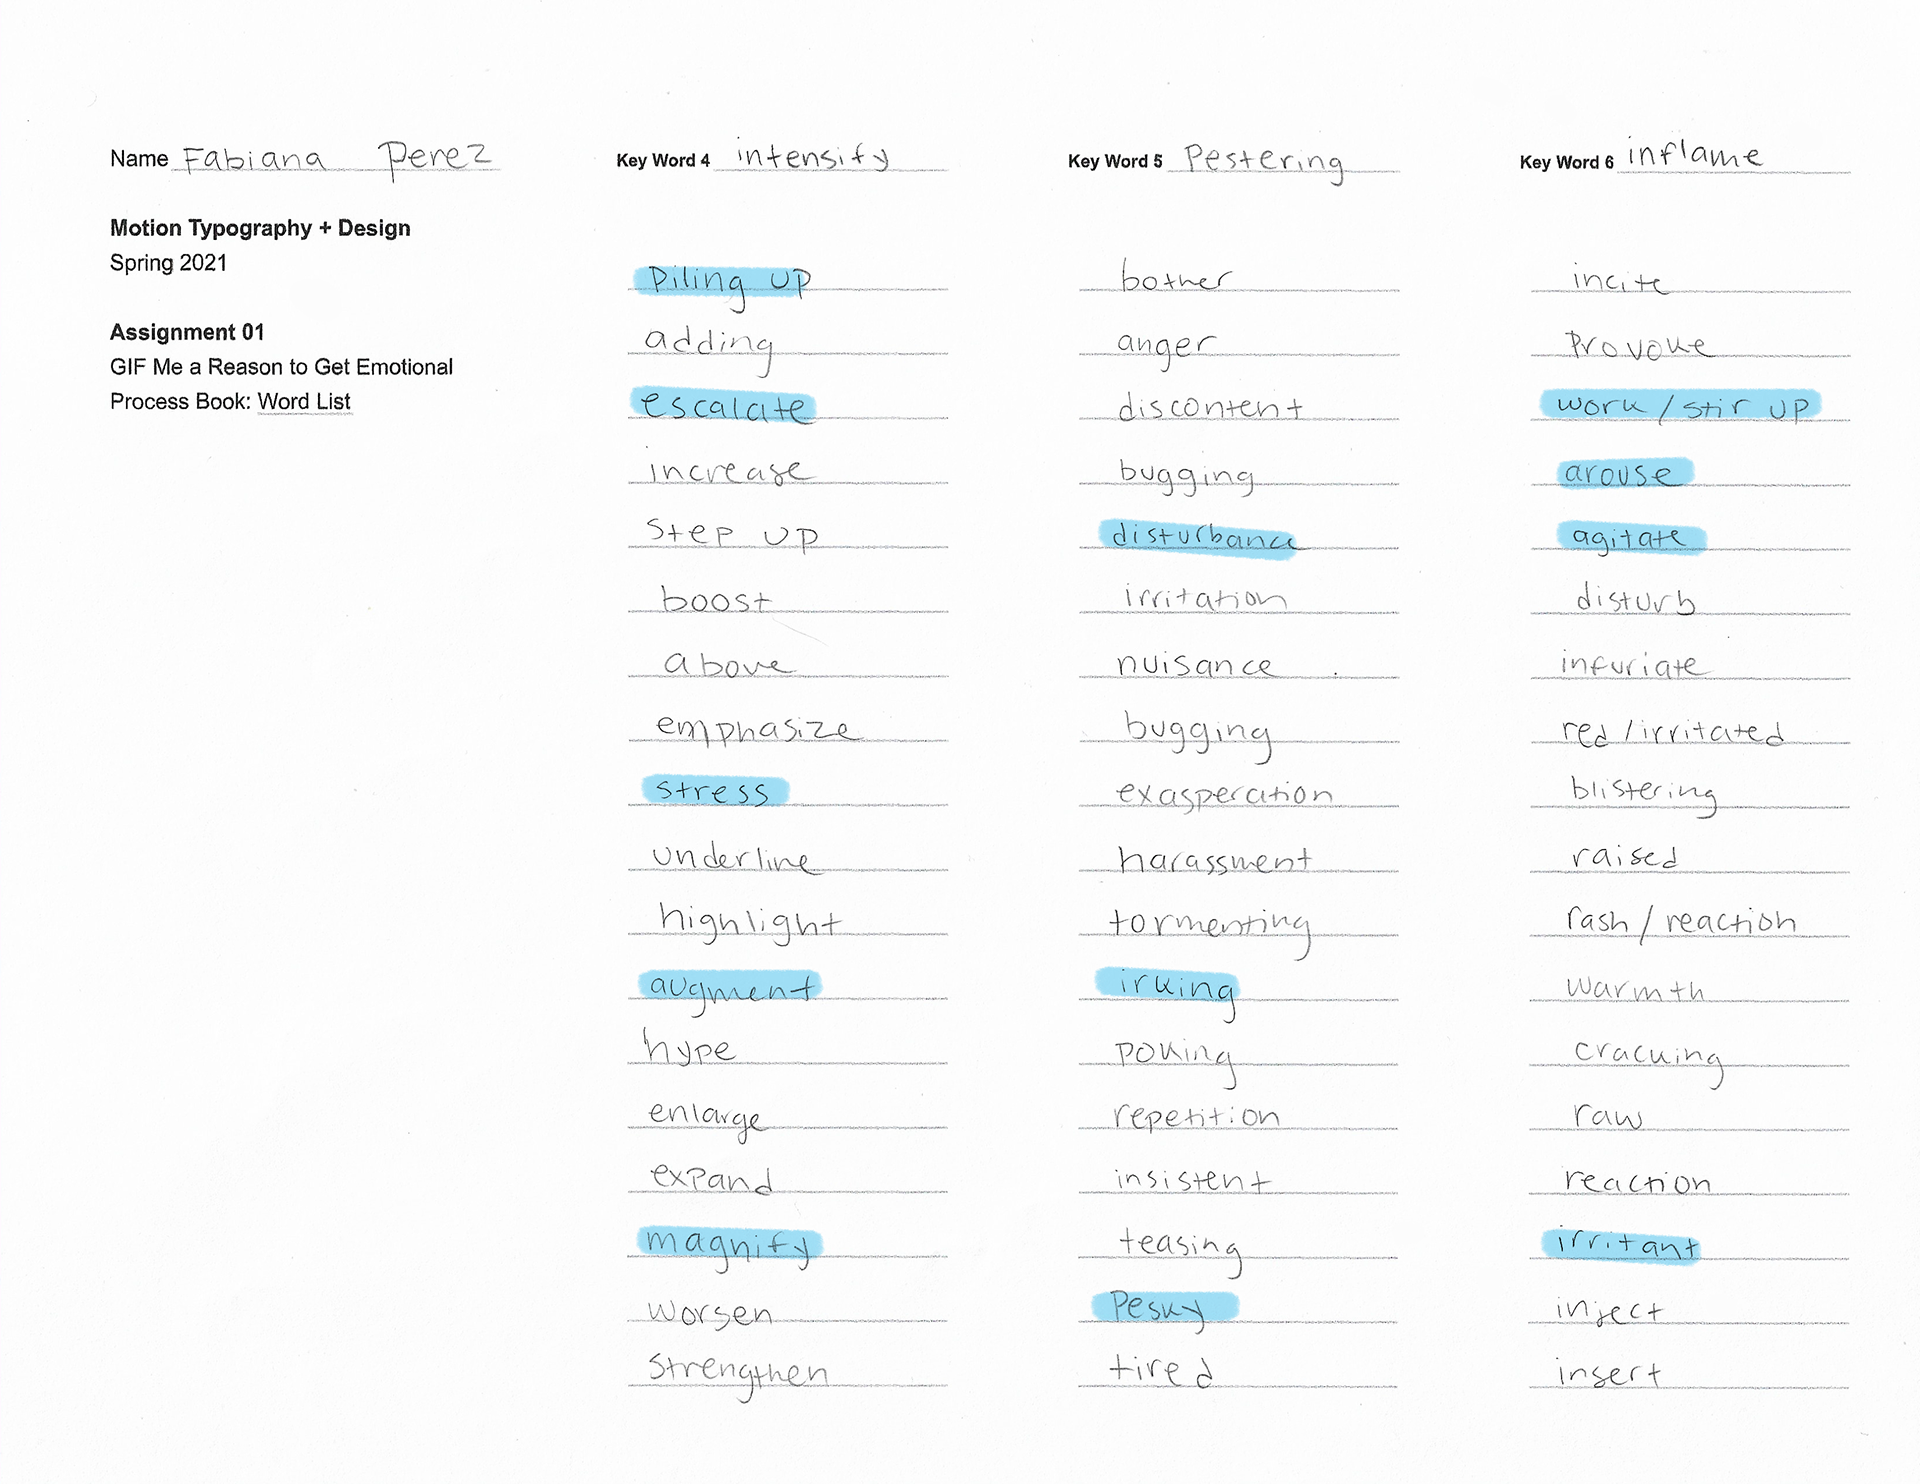 Name Fabiana Perez
Motion Typography + Design
Spring 2021
Assignment 01
GIF Me a Reason to Get Emotional
Process Book: Word List
Key Word 4 intensify
Piling up
adding
escalate
increase
Step up
boost
above
emphasize
stress
underline
highlight
augment
hype
enlarge
expand
magnify
worsen
Strengthen
Key Word 5 Pestering
bother
anger
discontent
bugging
disturbance
irritation
nuisance
bugging
exasperation
harassment
tormenting
irking
poking
repetition
insistent
teasing
Pesky
tired
Key Word 6 inflame
incite
Provoke
work / stir up
arouse
agitate
disturb
infuriate
red / irritated
blistering
raised
rash / reaction
warmth
cracking
raw
reaction
irritant
inject
insert